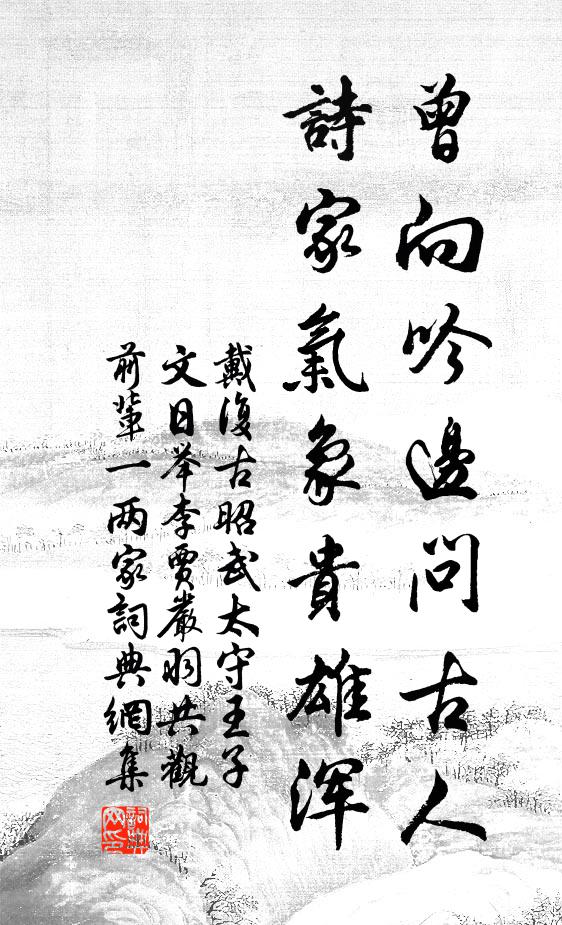 曾向吟邊問古人
詩家氣象貴雄渾
戴復古昭武太守王子
文日举李賈嚴羽共觀
前輩一两家詞典網集
詞典网印